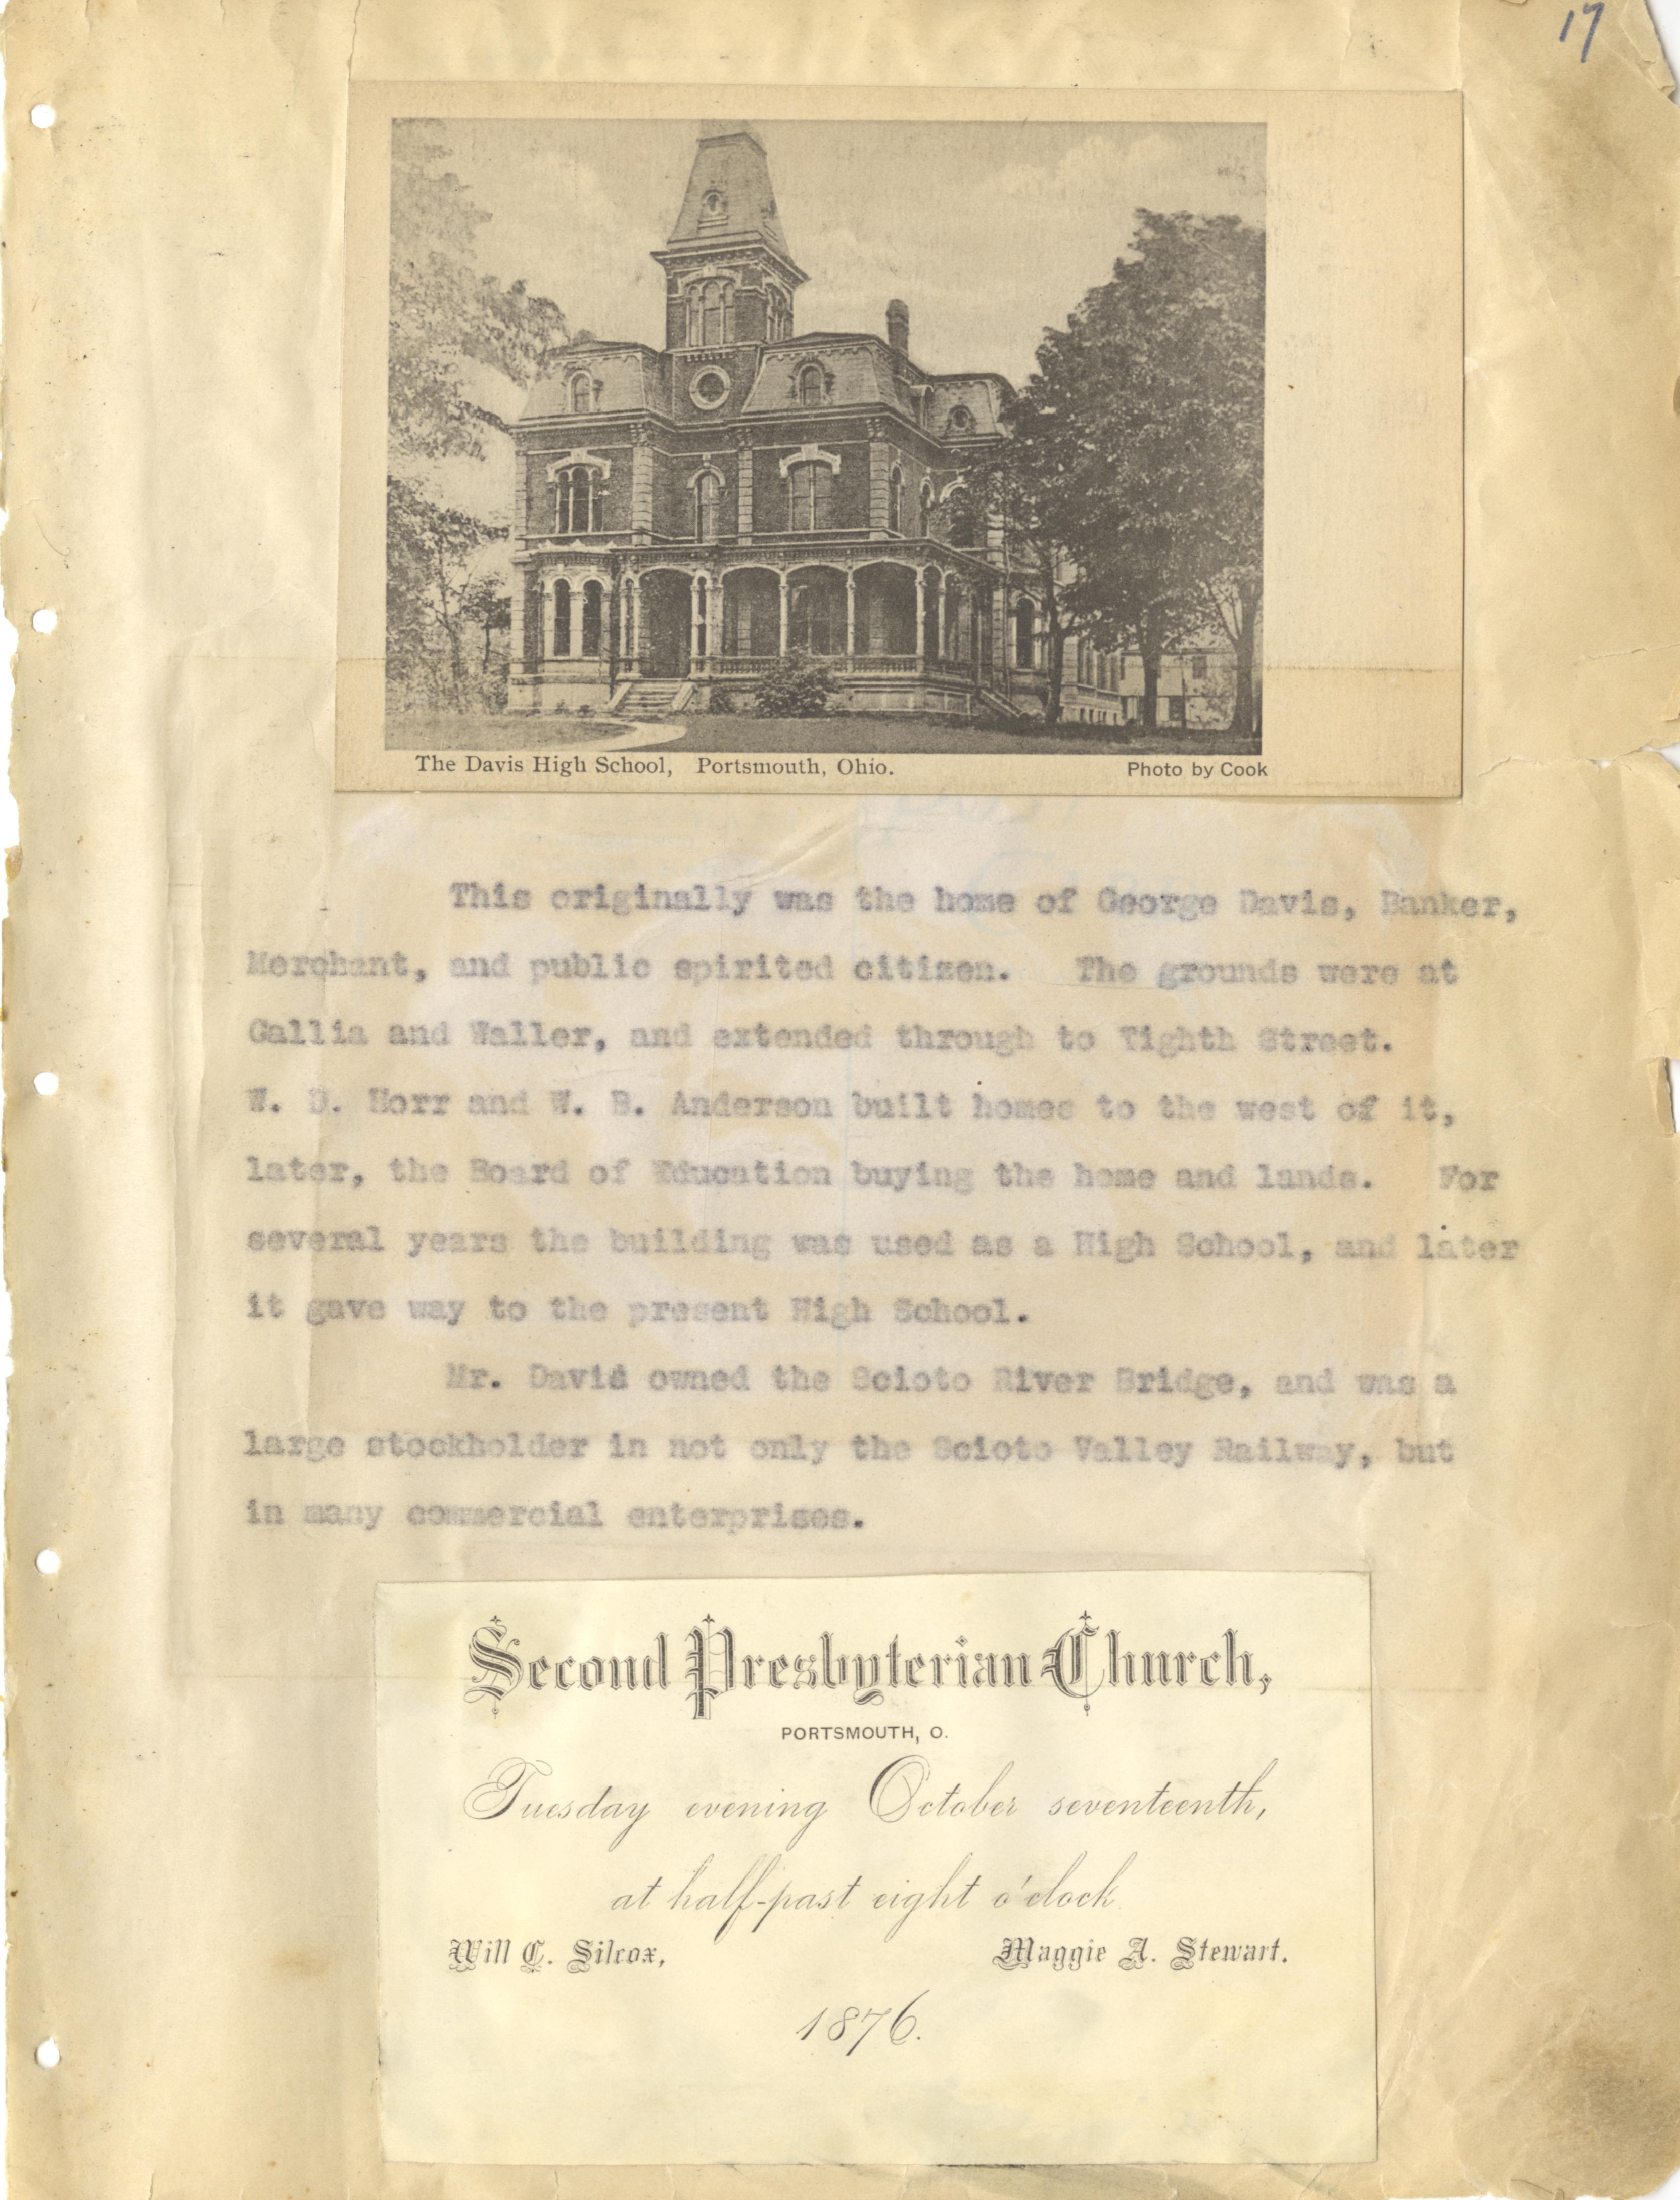 17
The Davis High School, Portsmouth, Ohio.
Photo by Cook
This originally was the home of George Davis, Banker,
Merchant, and public spirited citizen. The grounds were at
Gallia and Waller, and extended through to Eighth Street.
W. D. Horr and W. B. Anderson built homes to the west of it,
later, the Board of Education buying the home and lands. For
several years the building was used as a High School, and later
it gave way to the present High School.
Mr. Davis owned the Scioto River Bridge, and was a
large stockholder in not only the Scioto Valley Railway, but
in many commercial enterprises.
Second Presbyterian Church,
PORTSMOUTH, O.
Tuesday evening October seventeenth,
at half-past eight o'clock
Will C. Silcox, Maggie A. Stewart.
1876.